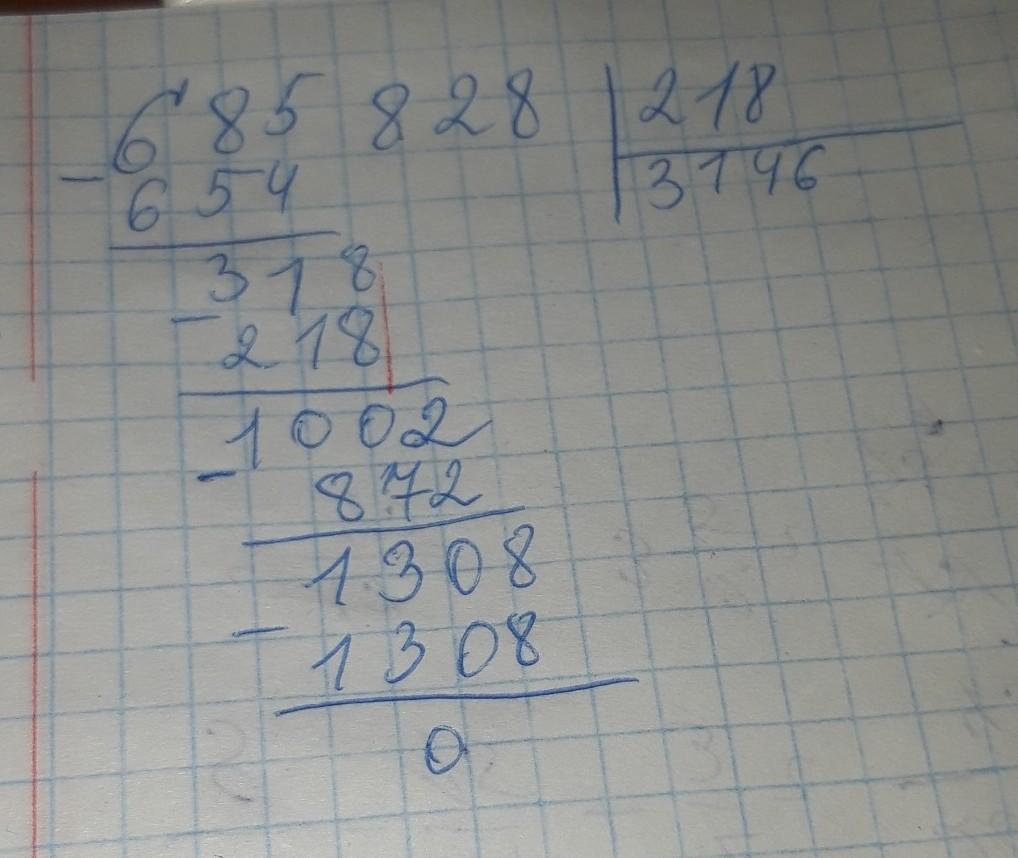 685 828 | 218
- 654 | 3146
318
- 218
1002
- 872
1308
- 1308
0